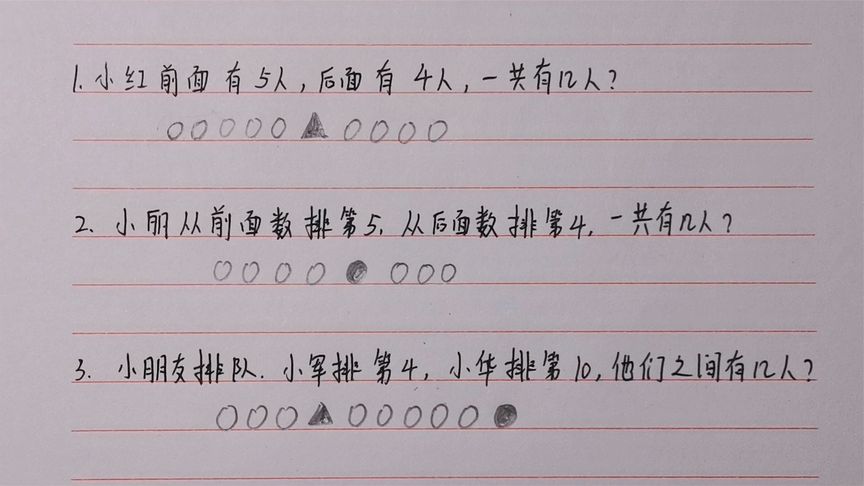 1. 小红前面有5人，后面有4人，一共有几人？
2. 小丽从前面数排第5，从后面数排第4，一共有几人？
3. 小朋友排队．小军排第4，小华排第10，他们之间有几人？